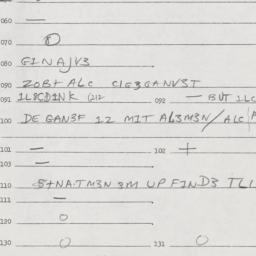 060 —
070 O
080 GINAJV3
090 ZOBT ALC CIG3GANV3T
091 1L8CD1NK (212 092 — BUT 1LC
100 DE GAN3F 12 MIT AL3M3N/ALC
101 — 102 +
103 —
110 S+NATM3N 3M UP FIND3 TLI
111 —
120 O
130 O 131 O